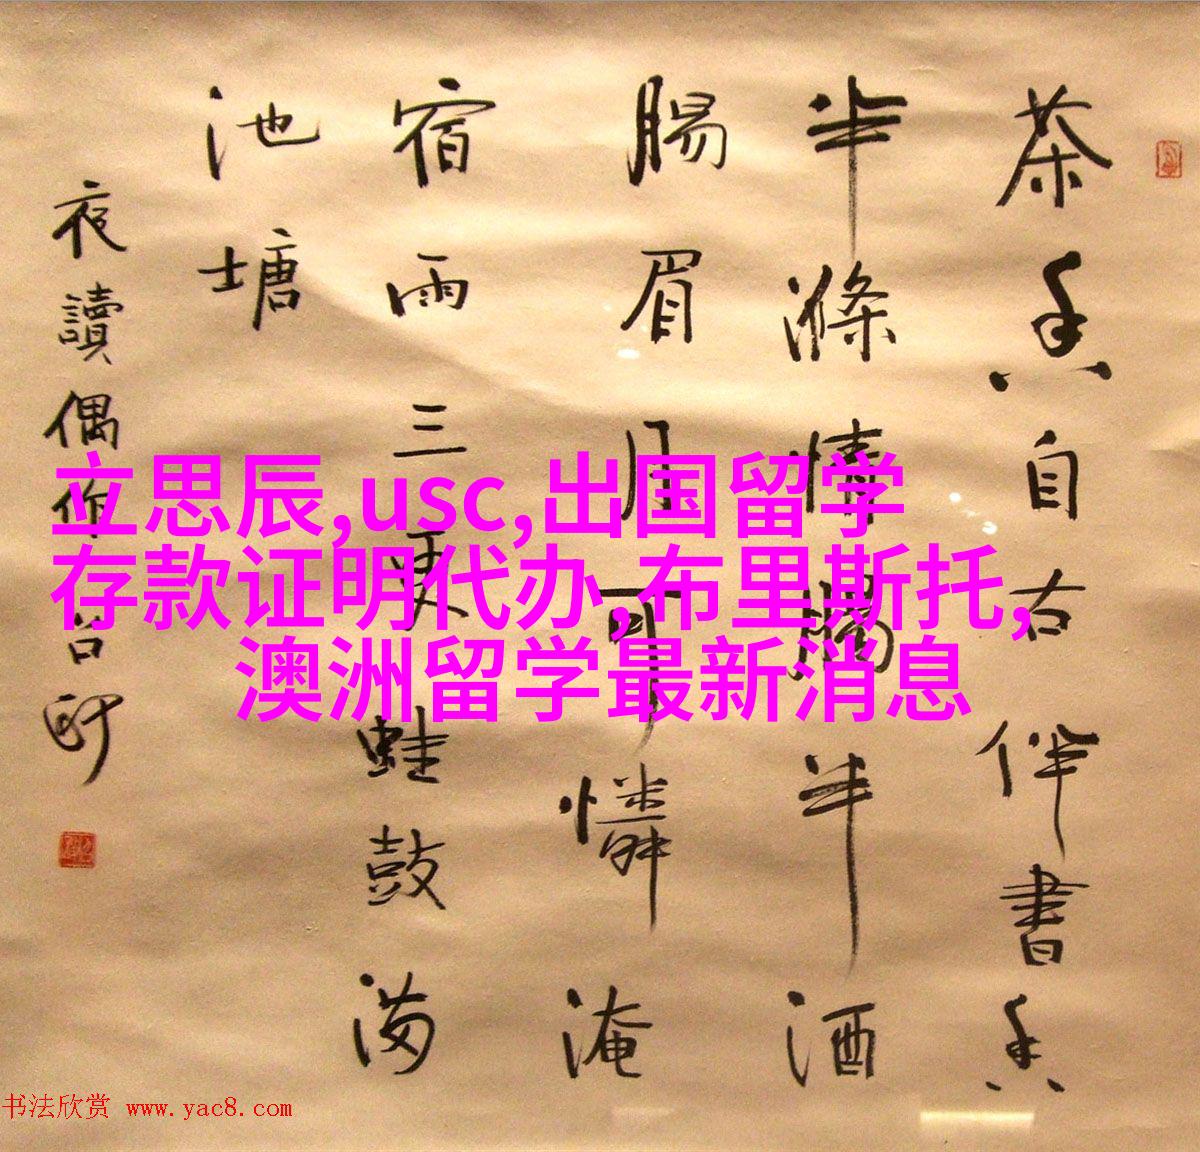 茶香自古伴書香
半滌情腸半酒
腸眉月可憐淹
宿雨三更蛙鼓满
池塘
夜讀偶作
立思辰,usc,出国留学
存款证明代办,布里斯托,
澳洲留学最新消息
书法欣赏 www.yac8.com